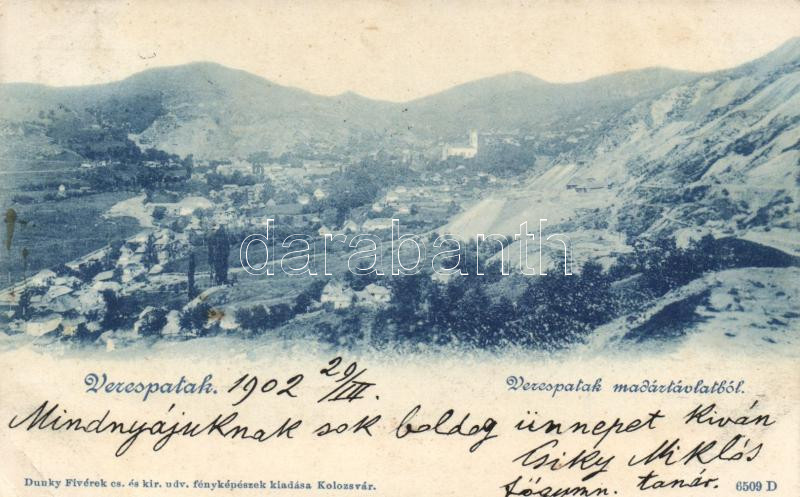 darabanth
Verespatak. 1902 29/III.
Verespatak madártávlatból.
Mindnyájuknak sok boldog ünnepet kiván
Csiky Miklós
főgymn. tanár.
Dunky Fivérek cs. és kir. udv. fényképészek kiadása Kolozsvár.
6509 D